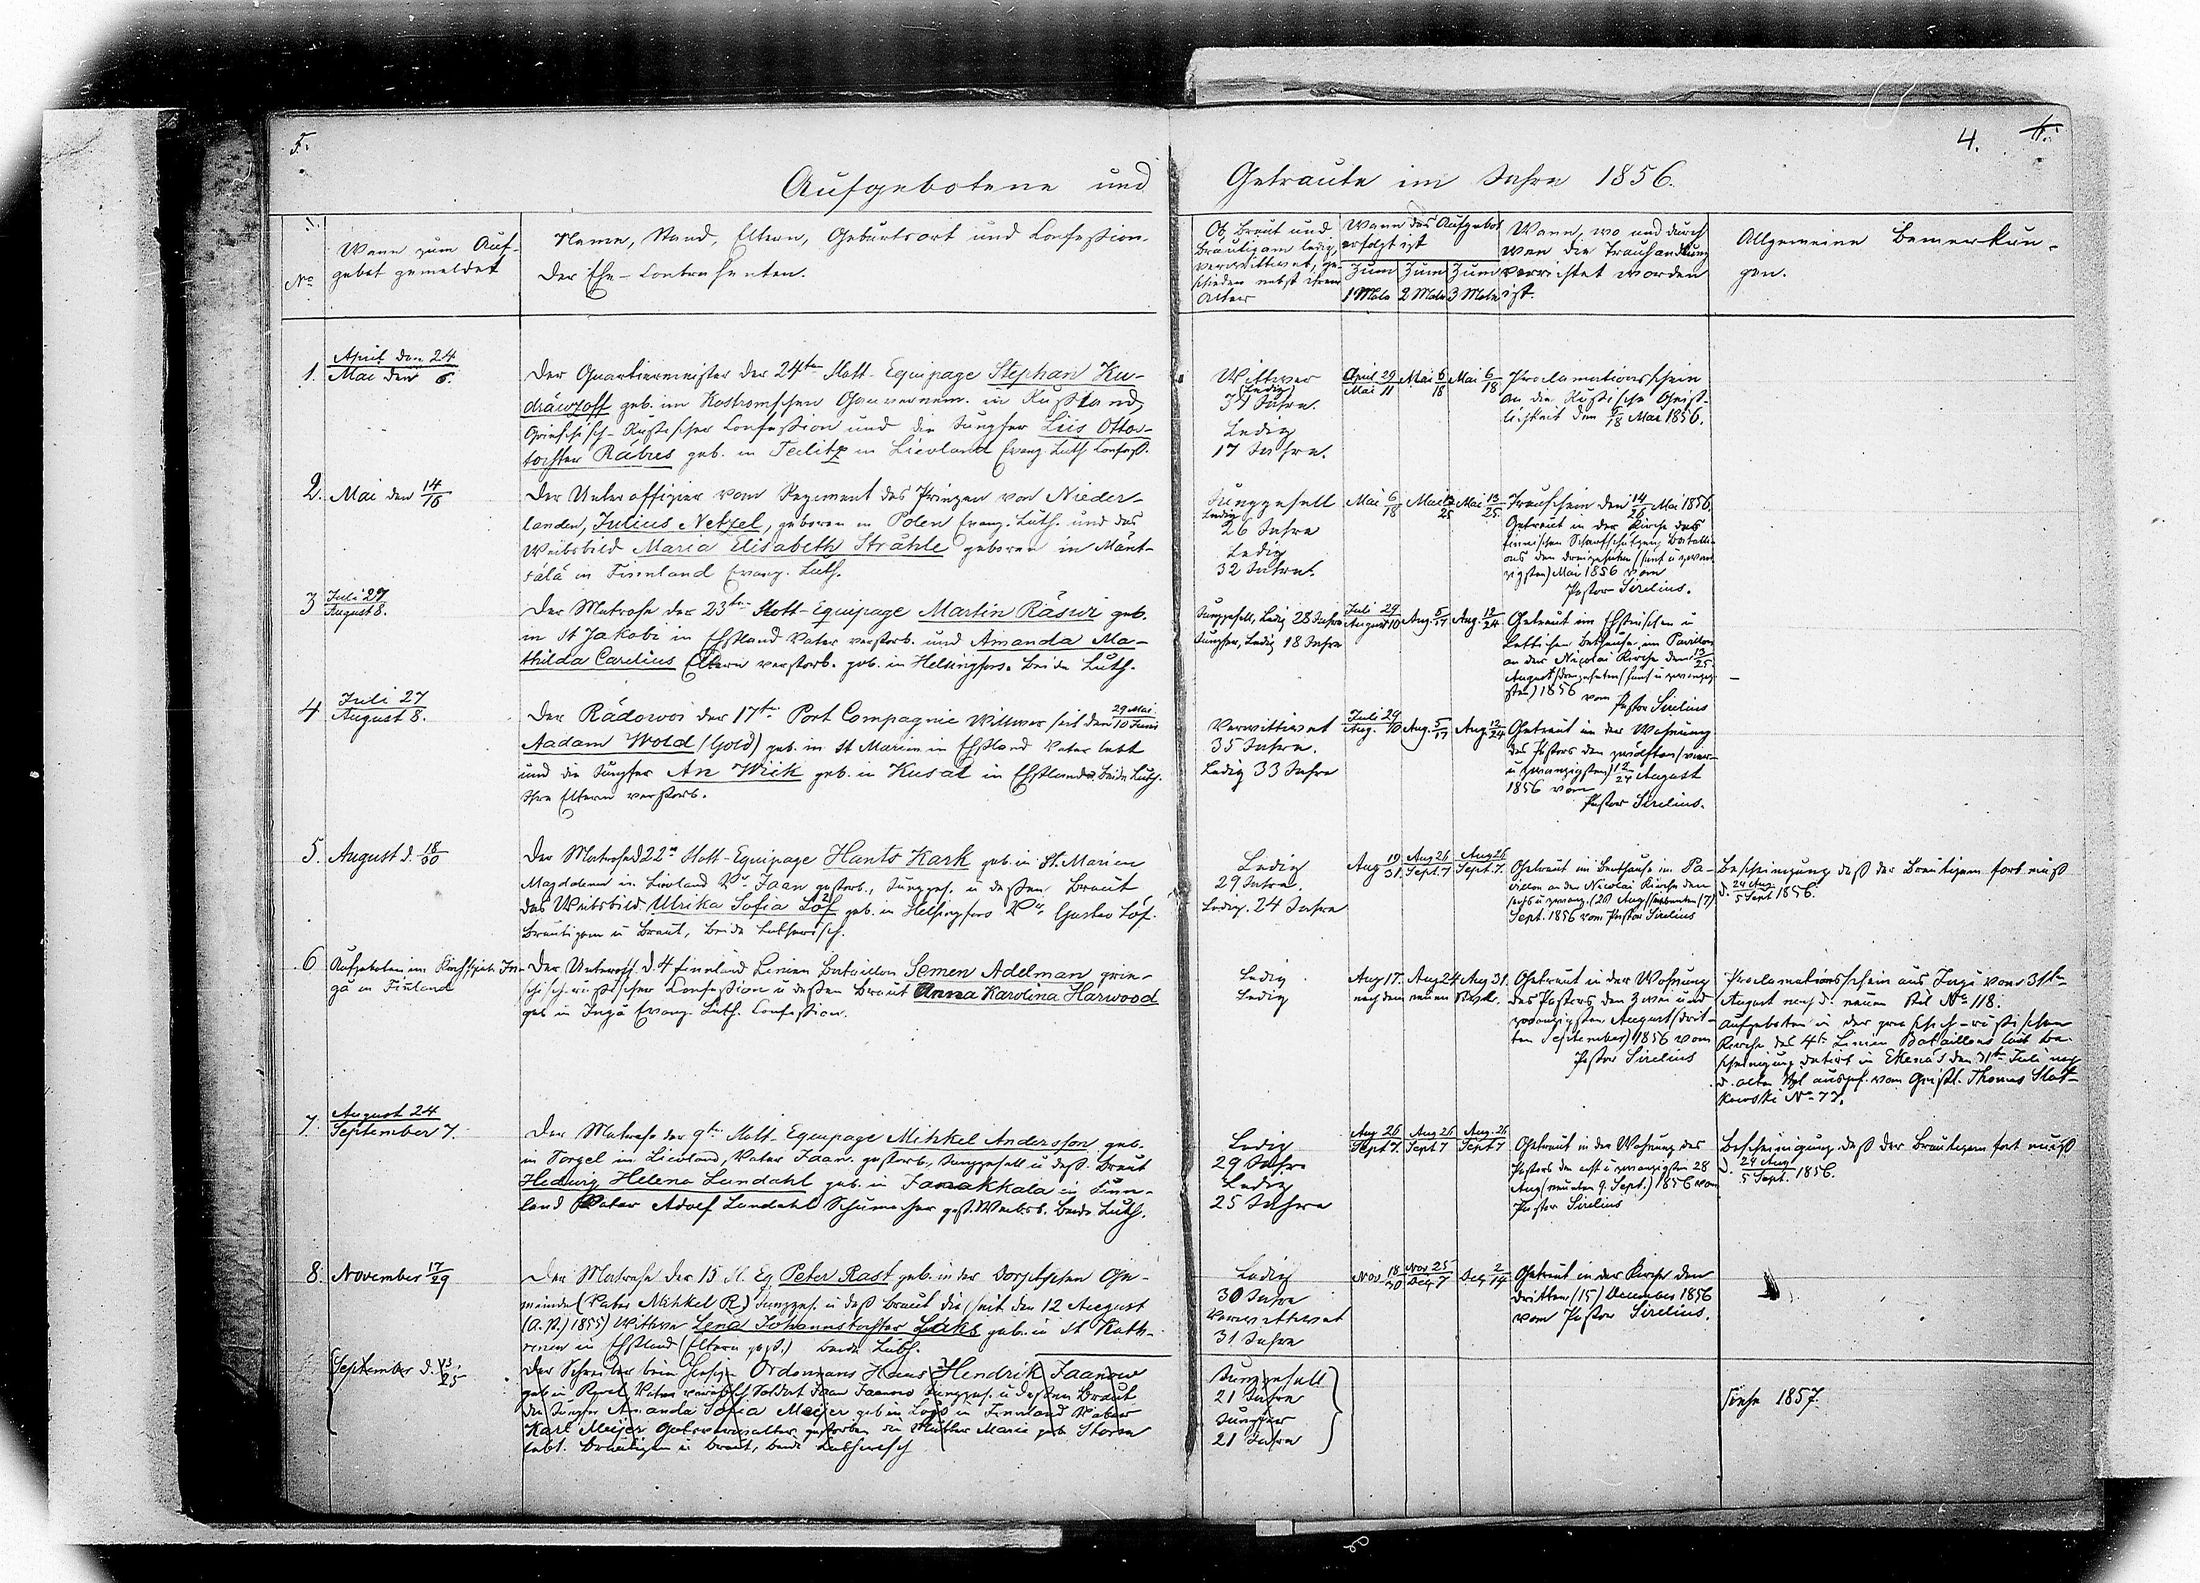 5.
4.
Aufgebotene und Getraute im Jahre 1856.
No
Wann zum Auf-
gebot gemeldet
Namen, Stand, Eltern, Geburtsort und Confession
der Ehe-Contrahenten.
Ob Braut und
Bräutigam ledig,
verwittwet, ge-
schieden nebst ihrem
Alter
Wann das Aufgebot
erfolgt ist
Zum
1 Male
Zum
2 Male
Zum
3 Male
Wann, wo und durch
wen die Trauhandlung
verrichtet worden
ist.
Allgemeine Bemerkun-
gen.
1.
April den 24
Mai den 6.
Der Quartiermeister der 24ten Flott-Equipage Stephan Ku-
dräwzoff geb. im Kostromschen Gouvernem. in Rußland,
Griechisch-Russischer Confession und die Jungfer Lies Otto-
tochter Räbres geb. in Teilitz in Livland Evang. Luth. Confess.
Wittwer
(Ledig)
Jahre.
Ledig
17 Jahre.
April 29
Mai 11
Mai 6/18
Mai 6/18
Proclamationsschein
an die Russische Geist-
lichkeit den 6/18 Mai 1856.
2.
Mai den 14/16
Der Unteroffizier vom Regiment des Prinzen von Nieder-
landen, Julius Netzel, geboren in Polen Evang. Luth. und das
Weibsbild Maria Elisabeth Strähle geboren in Mänt-
sälä in Finnland Evang. Luth.
Junggesell
Ledig
26 Jahre
Ledig
32 Jahre.
Mai 6/18
Mai 13/25
Mai 13/25
Trauschein den 14/26 Mai 1856.
Getraut in der Kirche des
finnischen Scharfschützen Batalli-
ons den dreizehnten (fünf u zwan-
zigsten) Mai 1856 vom
Pastor Sirelius.
3
Juli 27
August 8.
Der Matrose der 23ten Flott-Equipage Martin Räswi geb.
in St Jakobi in Ehstland Vater verstorb. und Amanda Ma-
thilda Carelius Eltern verstorb. geb. in Helsingfors. beide Luth.
Junggesell, Ledig 28 Jahre
Jungfer, Ledig 18 Jahre
Juli 29
August 10
Aug. 5/17
Aug. 12/24
Getraut im Ehstnischen u
Lettischen Bethause im Pavillon
an der Nicolai Kirche den 13/25
August (dreizehnten (fünf u zwanzig-
sten) 1856 vom Pastor Sirelius
4
Juli 27
August 8.
Der Rädowoi der 17ten Port Compagnie Wittwer seit den 29 Mai/10 Juni
Aadam Wold (Gold) geb. in St Marien in Ehstland Vater lebt
und die Jungfer An Wiik geb. in Kusal in Ehstland. Beide Luth.
Ihre Eltern verstorb.
Verwittwet
35 Jahre.
Ledig 33 Jahre
Juli 29
Aug. 10
Aug. 5/17
Aug. 12/24
Getraut in der Wohnung
des Pastors den zwölften (vier-
u zwanzigsten) 12/24 August
1856 vom
Pastor Sirelius.
5.
August d. 18/30
Der Matrose d 22n Flott-Equipage Hants Kark geb. in St. Marien
Magdalenen in Livland Vr Jaan gestorb., Jungges. u dessen Braut
das Weibsbild Ulrika Sofia Löf geb. in Helsingfors Vr. Gustav Löf.
Bräutigam u Braut, beide Lutherisch.
Ledig
29 Jahre.
Ledig. 24 Jahre
Aug 19/31
Aug 26
Sept. 7
Aug 26
Sept. 7.
Getraut im Bethause im Pa-
villon an der Nicolai Kirche den
sechs u zwanz. (26) Aug (siebenten (7)
Sept. 1856 vom Pastor Sirelius
Bescheinigung daß der Bräutigam fort muß
d. 24 Aug/5 Sept 1856.
6
Aufgeboten im Kirchspiel In-
gå in Finland
Der Unteroff. d. 4 finnländ Linien Bataillon Semen Adelman grie-
chisch-russischer Confession u dessen Braut Anna Karolina Harwood
geb in Ingå Evang. Luth. Confession.
Ledig
Ledig
Aug 17. Aug 24 Aug 31.
nach dem neuen Styl.
Getraut in der Wohnung
des Pastors den zwei und
zwanzigsten August (drit-
ten September) 1856 vom
Pastor Sirelius
Proclamationsschein aus Ingå vom 31ten
August nach d. neuen Stil No 118.
Aufgeboten in der griechisch-russischen
Kirche des 4ten Linien Bataillons laut Be-
scheinigung datirt in Ekenäs den 31ten Juli nach
d. alten Styl ausgef. vom Geistl. Thomas Slot-
kowski No 77.
7.
August 24
September 7.
Der Matrose der 9ten Flott-Equipage Mihkel Andersson geb.
in Torgel in Livland, Vater Jaan gestorb, Junggesell u dess. Braut
Hedwig Helena Lundahl geb. in Janakkala in Finn-
land Vater Adolf Lundahl Schumacher gest. Weibsb. beide Luth.
Ledig
29 Jahre
Ledig
25 Jahre
Aug 26
Sept 7.
Aug 26
Sept 7
Aug. 26
Sept 7
Getraut in der Wohnung des
Pastors den acht u zwanzigsten 28
Aug (neunten 9. Sept.) 1856 vom
Pastor Sirelius
Bescheinigung daß der Bräutigam fort muß
d. 24 Aug/5 Sept. 1856.
8.
November 17/29
Der Matrose der 15 Fl. Eq Peter Rast geb. in der Dorptschen Ge-
meinde (Vater Mihkel R.) Jungges. u deß Braut die (seit den 12 August
(a. St.) 1855) Wittwe Lena Johannstochter Laks geb. in St Kath-
rinen in Ehstland (Eltern gest.) beide Luth.
Ledig
30 Jahre
Verwittwet
31 Jahre
Nov. 18/30
Nov 25
Dec 7
Dec 2/14
Getraut in der Kirche den
dritten (15) December 1856
vom Pastor Sirelius.
September d. 13/25
Der Schreiber beim Ordonnans Haus Hendrik Jaanow
geb in Reval Vater Soldat Jaan Jaanow Jungges. u dessen Braut
die Jungfer Amanda Sofia Meijer geb in Lojo in Finnland Vater
Karl Meijer Gutsverwalter gestorben die Mutter Maria geb Storm
lebt. Bräutigam u Braut, beide Lutherisch
Junggesell
21 Jahre
Jungfer
21 Jahre
siehe 1857.